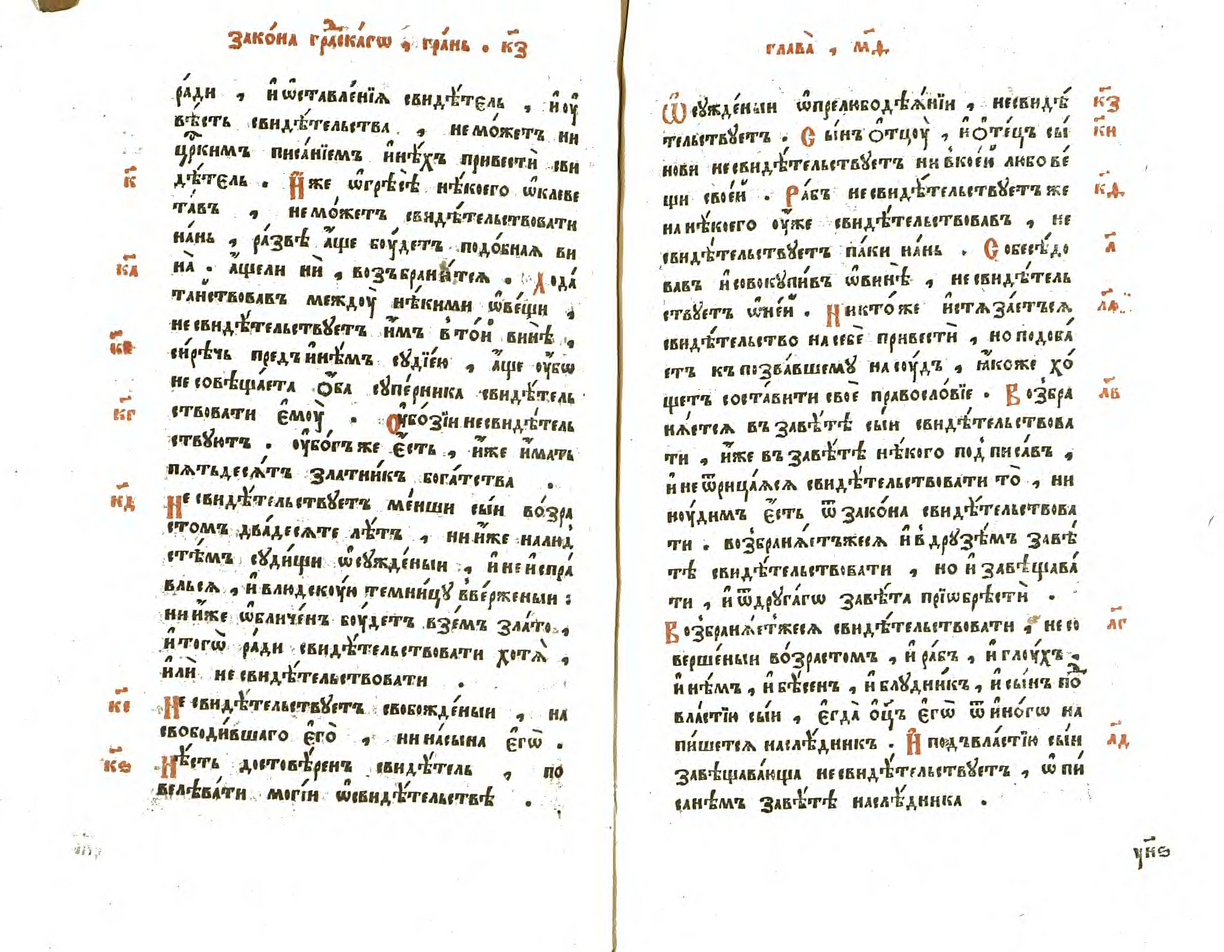 Зако́на гра́дскагѡ , гра́нь . к҃з
ра́ди , и҆ѡ҆ставле́нїѧ свидѣ́тєль , и҆оу҆
вѣ́сть свидѣ́тельства , немо́жетъ ни
цр҃кимъ писа́нїемъ и҆нѣ́хъ привестѝ сви
к҃ дѣ́тель . И҆́же ѡ҆грѣсѣ̀ нѣ́коего ѡ҆клеве
та́въ , немо́жетъ свидѣ́тельствовати
на́нь , ра́звѣ а҆́ще боу́детъ подо́бная ви
к҃а на̀ . а҆́щели нѝ , возъбрани́тся . Хода́
та́йствовавъ междоу̀ нѣ́кими ѡ҆ве́щи ,
несвидѣ́тельствꙋетъ и҆̀мъ в то́й винѣ̀ ,
к҃в си́рѣчь предъи҆нѣ́мъ сꙋдїе́ю , а҆́ще оу҆́бѡ
несовѣща́ета о҆́ба сꙋпе́рника свидѣ́тель
к҃г ствовати є҆моу̀ . Оу҆бо́зїи несвидѣ́тель
ствꙋютъ . оу҆бо́гъ же є҆́сть , и҆́же и҆́мать
пятьдеся́тъ златни́къ бога́тства .
к҃д Не свидѣ́тельствꙋетъ ме́нши сы́и во́зра
стомъ два́десяте лѣ́тъ , ни и҆́же налюд
стѣ́мъ сꙋди́щи ѡ҆сꙋжде́ныи , и҆не и҆спра́
вльсѧ , и҆влюдскоу́ю темни́цꙋ вве́рженыи :
ни и҆́же ѡ҆бличе́нъ боу́детъ взе́мъ зла́то ,
и҆тогѡ̀ ра́ди свидѣ́тельствовати хотя̀ ,
и҆лѝ не свидѣ́тельствовати .
к҃е Не свидѣ́тельствꙋетъ свобожде́ныи , на
свободи́вшаго є҆го̀ , нинасы́на є҆гѡ̀ .
к҃ѕ Нѣ́сть достовѣ́ренъ свидѣ́тель , по
велѣва́ти моги́и ѡ҆свидѣ́тельствѣ .
глава̀ , м҃д
к҃з Ѡ҆сꙋжде́ныи ѡ҆прелюбодѣѧ́нїи , несвидѣ́
к҃и тельствꙋетъ . Сы́нъ о҆тцоу̀ , и҆о҆те́цъ сы́
нови несвидѣ́тельствꙋетъ ни вкое́й либо ве́
к҃ѳ щи свое́й . Ра́бъ несвидѣ́тельствꙋетъ же
нанѣ́коего оу҆́же свидѣ́тельствовавъ , не
л҃ свидѣ́тельствꙋетъ па́ки на́нь . Собесѣ́до
вавъ и҆совокꙋпи́въ ѡ҆винѣ̀ , несвидѣ́тель
л҃а ствꙋетъ ѡ҆не́й . Никто́же и҆стѧза́етъсѧ
свидѣ́тельство насебѐ привестѝ , но подоба́
етъ къ позва́вшемꙋ насоу́дъ , ꙗ҆́коже хо́
л҃в щетъ соста́вити своѐ правосло́вїе . Возбра
нѧ́етсѧ въ завѣ́тѣ сы́и свидѣ́тельствова
ти , и҆́же въ завѣ́тѣ нѣ́кого под писа́въ ,
и҆неѿрица́ѧсѧ свидѣ́тельствовати то̀ , ни
ноу́димъ є҆́сть ѿ зако́на свидѣ́тельствова
ти . возбранѧ́етъжесѧ и҆в дрꙋзѣ́мъ завѣ́
тѣ свидѣ́тельствовати , но и҆ завѣщава́
ти , и҆ѿдрꙋга́гѡ завѣ́та прїѡбрѣстѝ .
л҃г Возбранѧ́етжесѧ свидѣ́тельствовати , несо
верше́ныи во́зрастомъ , и҆ра́бъ , и҆глоу́хъ ,
и҆нѣ́мъ , и҆бѣ́сенъ , и҆блꙋдни́къ , и҆сы́нъ по́д
вла́стїю сы́и , є҆гда̀ о҆ц҃ъ є҆гѡ̀ ѿ и҆но́гѡ на
л҃д пи́шетсѧ наслѣ́дникъ . И҆ подъвла́стїю сы́и
завѣщава́юща несвидѣ́тельствꙋетъ , ѡ҆ пи
са́нѣмъ завѣ́тѣ наслѣ́дника .
ук҃ѕ